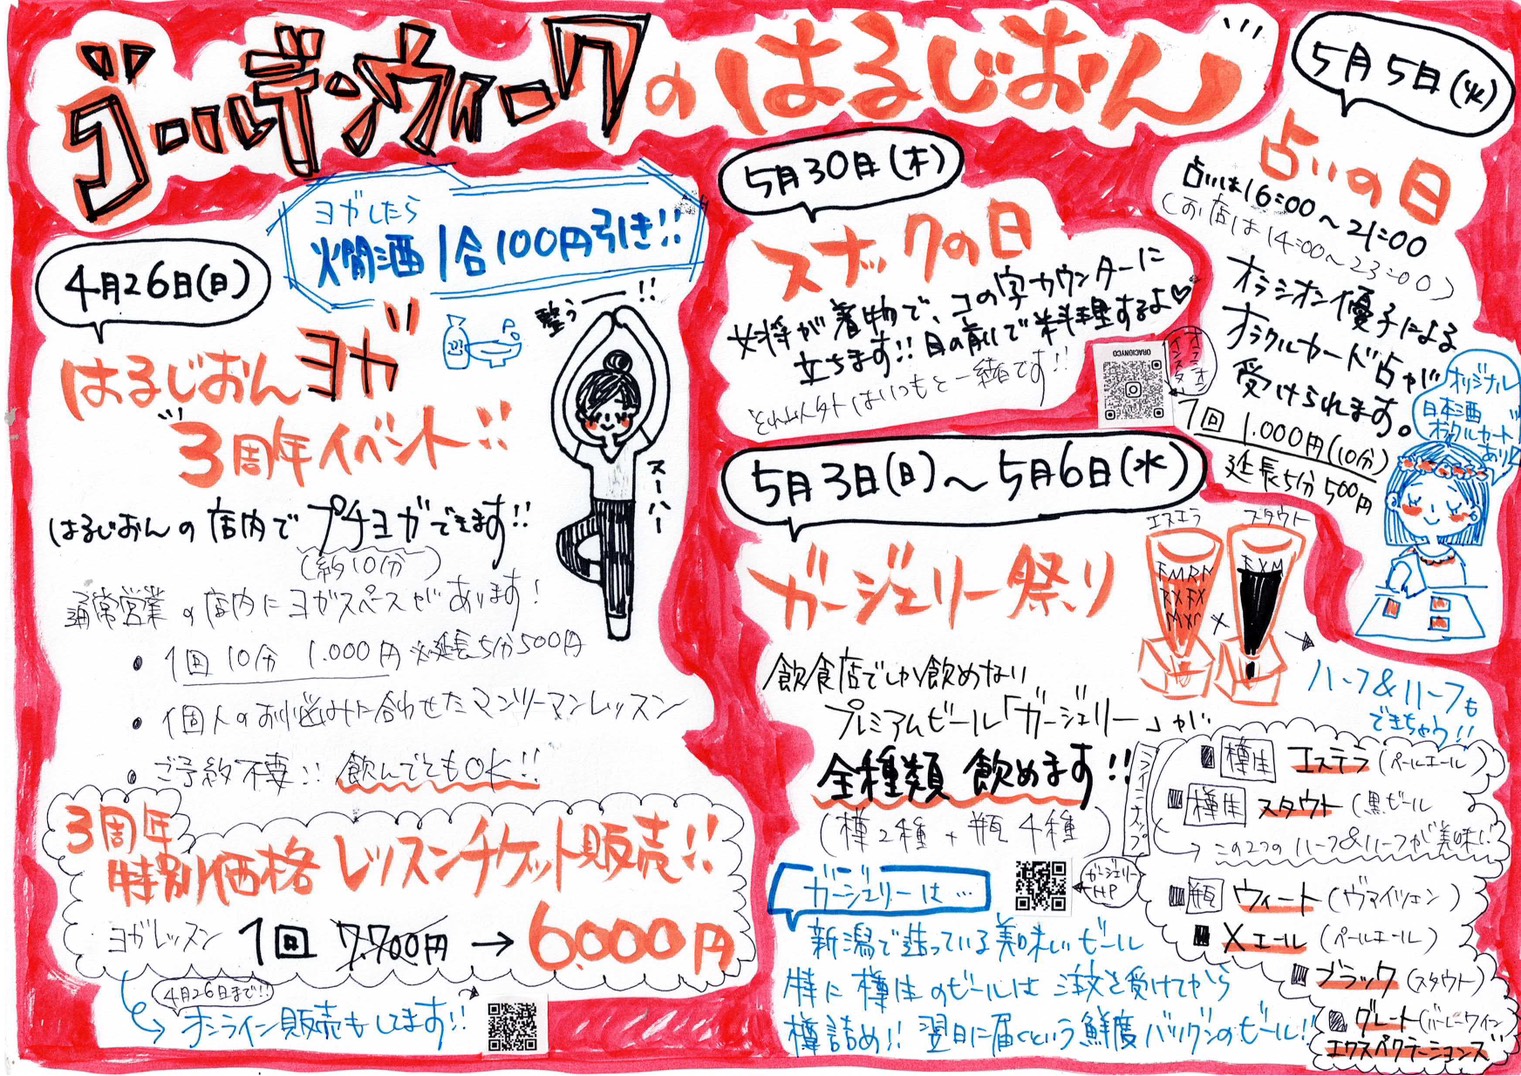 ゴールデンウィークのはるじおん
4月26日(日)
ヨガしたら
燗酒1合100円引き!!
はるじおんヨガ
3周年イベント!!
整うー!!
スーハー
はるじおんの店内でプチヨガできます!!
(約10分)
通常営業の店内にヨガスペースがあります!
・1回10分 1.000円 ※延長5分500円
・個人のお悩みに合わせたマンツーマンレッスン
・ご予約不要!! 飲んでてもOK!!
3周年
特別価格 レッスンチケット販売!!
ヨガレッスン 1回 7.700円 → 6.000円
4月26日まで!!
オンライン販売もしてます!!
5月30日(木)
スナックの日
女将が着物で、コの字カウンターに
立ちます!! 目の前で料理するよ♡
それ以外はいつもと一緒です!!
5月5日(火)
占いの日
占いは16:00〜21:00
(お店は14:00〜23:00)
オラシオン優子による
オラクルカード占が
受けられます。
1回 1.000円(10分)
延長5分500円
ORACIONYCO
オラシオン
インスタ
オリジナル
日本酒
オラクルカード
あり!!
5月3日(日)〜5月6日(水)
ガージェリー祭り
エステラ
スタウト
×
ハーフ&ハーフも
できちゃう!!
飲食店でしか飲めない
プレミアムビール「ガージェリー」が
全種類 飲めます!!
(樽2種+瓶4種)
ラインナップ
樽生 エステラ(ペールエール)
樽生 スタウト(黒ビール)
→この2つのハーフ&ハーフが美味い!!
瓶 ウィート(ヴァイツェン)
Xエール(ペールエール)
ブラック(スタウト)
グレート(バーレーワイン
エクスペクテーションズ
ガージェリーHP
ガージェリーは…
新潟で造っている美味しいビール
特に樽生のビールはご注文を受けてから
樽詰め!! 翌日に届くという鮮度バツグンのビール!!